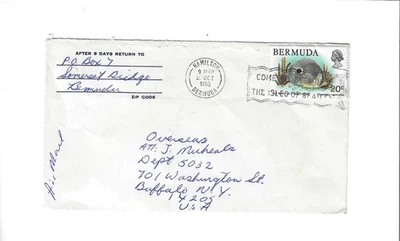 AFTER 5 DAYS RETURN TO
P.O. Box 7
Somerset Bridge
Bermuda
ZIP CODE
HAMILTON
9 30AM
OCT
BERMUDA
BERMUDA
20c
COME
THE ISLES OF
Air Mail
Overseas
Att. J. Micheals
Dept 5032
701 Washington St.
Buffalo N.Y.
14205
USA